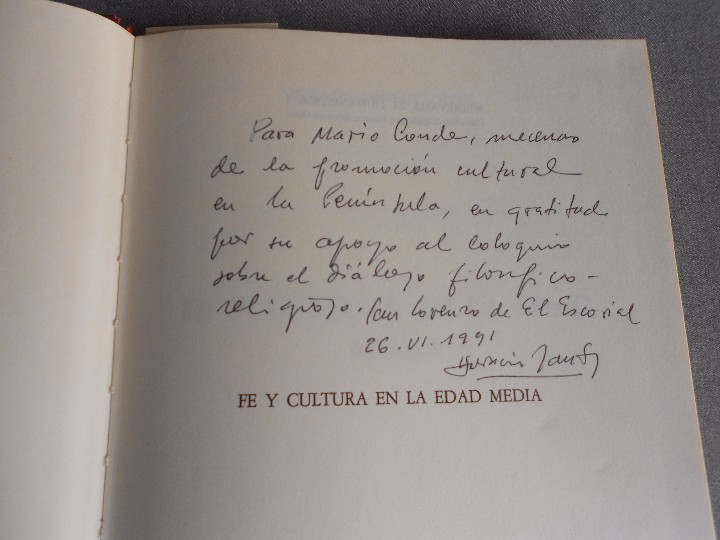 Para Mario Conde, mecenas
de la promoción cultural
en la Península, en gratitud
por su apoyo al Coloquio
sobre el diálogo filosófico-
religioso. San Lorenzo de El Escorial
26.VI.1991
FE Y CULTURA EN LA EDAD MEDIA